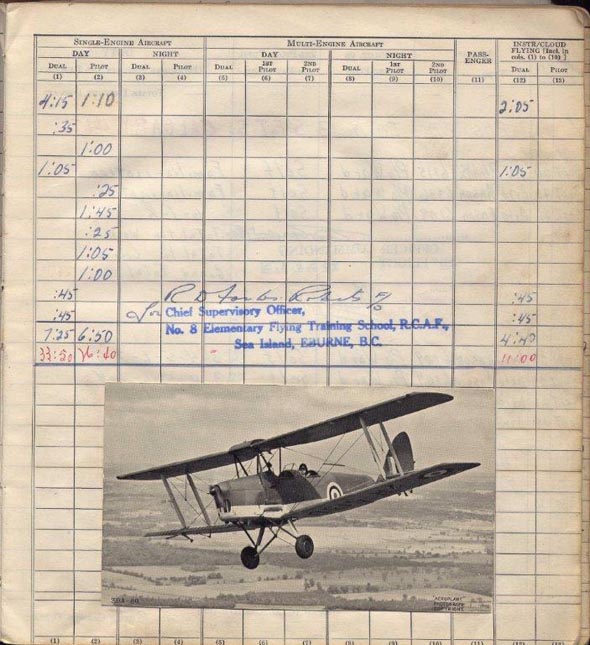 SINGLE-ENGINE AIRCRAFT MULTI-ENGINE AIRCRAFT PASS-ENGER INSTR/CLOUD FLYING [Incl. in cols. (1) to (10)]
DAY NIGHT DAY NIGHT
DUAL PILOT DUAL PILOT DUAL 1ST PILOT 2ND PILOT DUAL 1ST PILOT 2ND PILOT DUAL PILOT
(1) (2) (3) (4) (5) (6) (7) (8) (9) (10) (11) (12) (13)
4:15 1:10 2:05
:35
1:00
1:05 1:05
:25
1:45
:25
1:05
1:00
:45 :45
for Chief Supervisory Officer,
:45 :45
No. 8 Elementary Flying Training School, R.C.A.F.,
7:25 6:50 4:40
Sea Island, EBURNE, B.C.
11:00
"AEROPLANE"
PHOTOGRAPH
COPYRIGHT
(1) (2) (3) (4) (5) (6) (7) (8) (9) (10) (11) (12) (13)